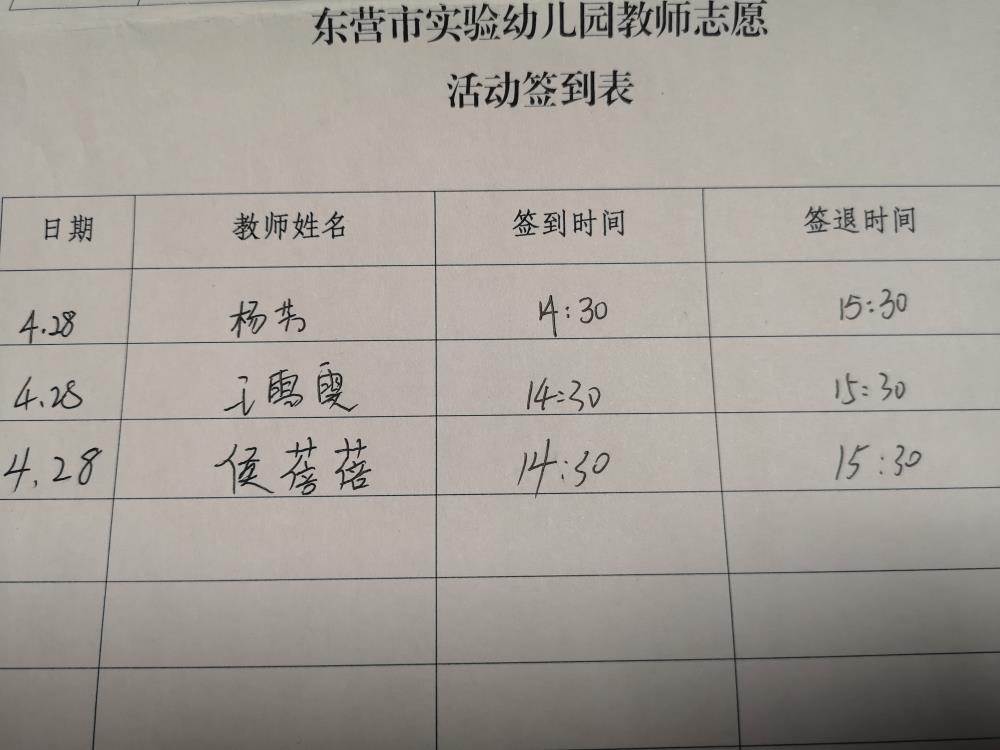 东营市实验幼儿园教师志愿
活动签到表
日期 教师姓名 签到时间 签退时间
4.28 杨芳 14:30 15:30
4.28 王雪雯 14:30 15:30
4.28 侯蓓蓓 14:30 15:30